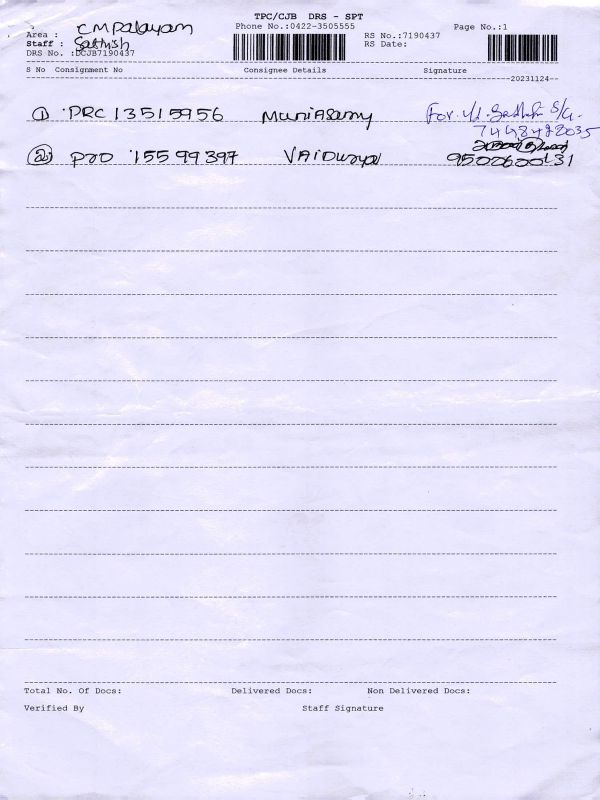 TPC/CJB DRS - SPT
Area : CMPalayam Phone No.:0422-3505555 Page No.:1
Staff : Sathish RS No.:7190437
DRS No. :DCJB7190437 RS Date:
S No Consignment No Consignee Details Signature
20231124
① PRC 13515956 MuniAsamy For.
② PRO 15599397 VAIDurya 9502600131
Total No. Of Docs: Delivered Docs: Non Delivered Docs:
Verified By Staff Signature